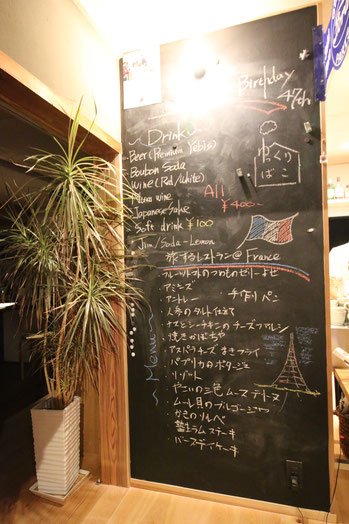 Birthday
47th
~Drink~
Beer (Premium Yebisu)
Boubon Soda
Wine (Red/White)
Plum wine
All
Japanese sake
¥400-
Soft drink ¥100
Jim/Soda-Lemon
ゆくり
ばこ
旅するレストラン@France
フルーツトマトのつめものゼリーよせ
アミューズ
アントレー
手作りパン
人参のタルト仕立て
ナスとシーチキンのチーズファルシ
焼きかぼちゃ
アスパラチーズまきフライ
パプリカのポタージュ
リゾット
やさいの三色ムーステリーヌ
ムール貝のブルゴーニュ
かきのソルベ
ラムステーキ
バースデイケーキ
~Menu~